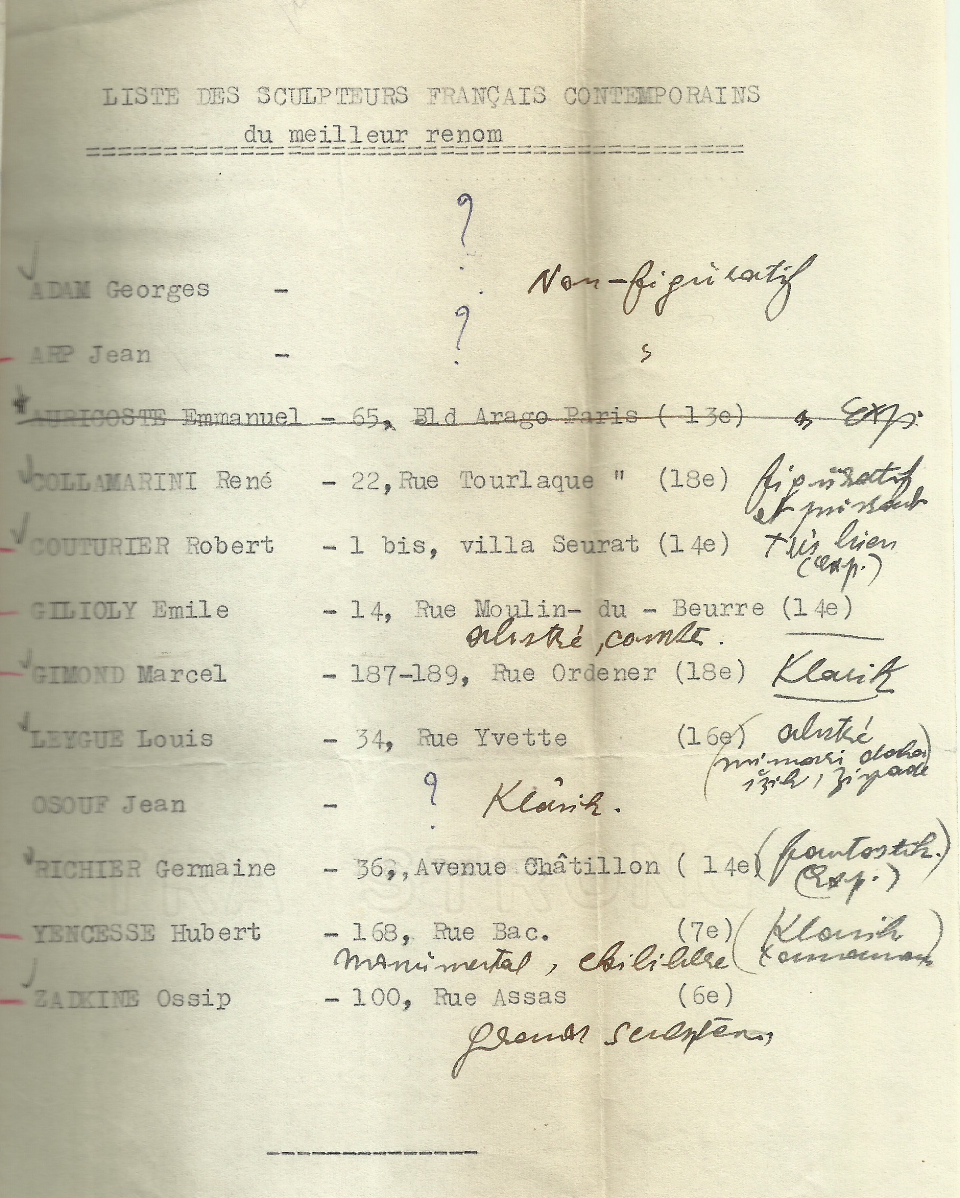 LISTE DES SCULPTEURS FRANÇAIS CONTEMPORAINS
du meilleur renom
?
ADAM Georges - Non-figüratif
?
ARP Jean - "
AURICOSTE Emmanuel - 65, Bld Arago Paris ( 13e) " Exp.
COLLAMARINI René - 22, Rue Tourlaque " (18e) figüratif
et
COUTURIER Robert - 1 bis, villa Seurat (14e) très bien
(exp.)
GILIOLY Emile - 14, Rue Moulin- du - Beurre (14e)
abstré,
GIMOND Marcel - 187-189, Rue Ordener (18e) Klasik
LEYGUE Louis - 34, Rue Yvette (16e) abstré
(mimari daha
OSOUF Jean - ? Klâsik.
RICHIER Germaine - 36,, Avenue Châtillon ( 14e) (fantastik.)
(Exp.)
YENCESSE Hubert - 168, Rue Bac. (7e) (Klasik
ZADKINE Ossip - 100, Rue Assas (6e)